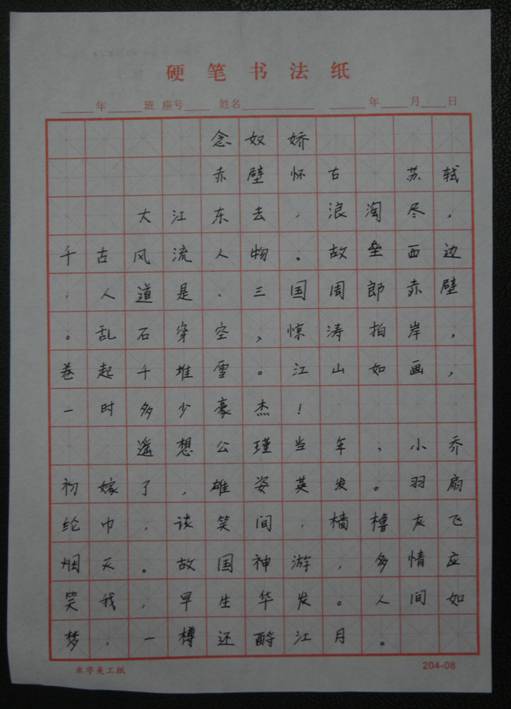 硬笔书法纸
年 班 座号 姓名 年 月 日
念奴娇
赤壁怀古 苏轼
大江东去，浪淘尽，
千古风流人物。故垒西边
，人道是，三国周郎赤壁
。乱石穿空，惊涛拍岸，
卷起千堆雪。江山如画，
一时多少豪杰！
遥想公瑾当年，小乔
初嫁了，雄姿英发。羽扇
纶巾，谈笑间，樯橹灰飞
烟灭。故国神游，多情应
笑我，早生华发。人间如
梦，一樽还酹江月。
204-08